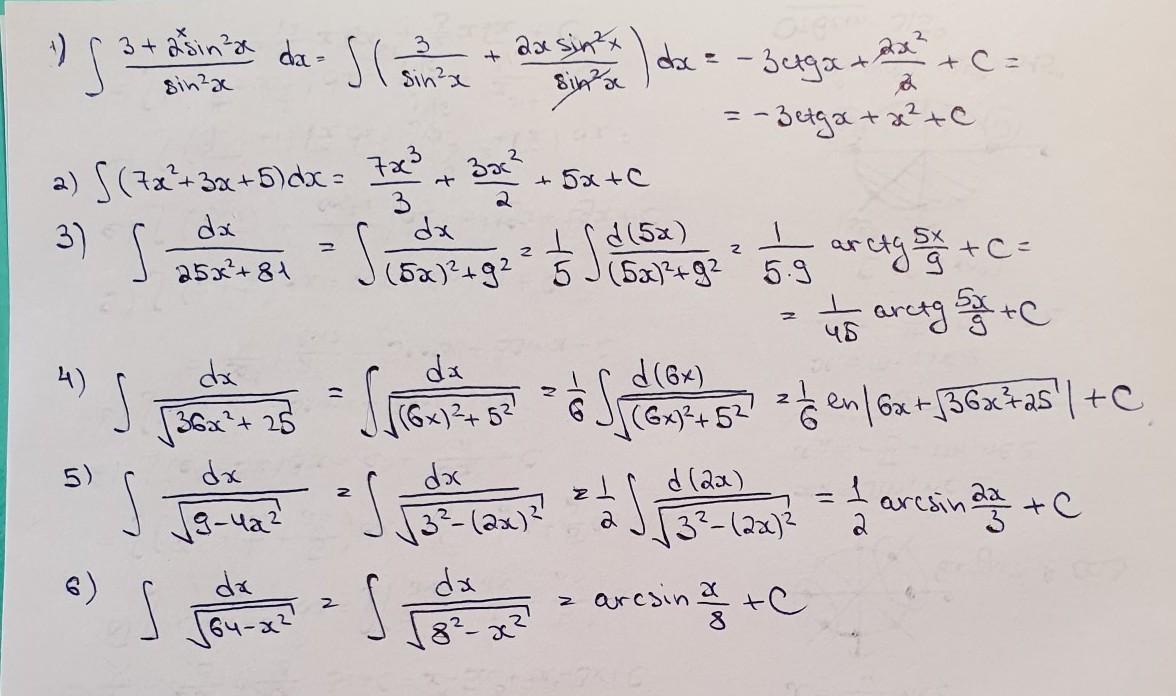 1) ∫ (3 + 2ˣsin²x)/(sin²x) dx = ∫ (3/(sin²x) + (2x sin²x)/(sin²x)) dx = -3ctgx + 2x²/2 + C =
= -3ctgx + x² + C
2) ∫(7x²+3x+5)dx = 7x³/3 + 3x²/2 + 5x + C
3) ∫ dx/(25x²+81) = ∫ dx/((5x)²+9²) = 1/5 ∫ d(5x)/((5x)²+9²) = 1/(5·9) arctg 5x/9 + C =
= 1/45 arctg 5x/9 + C
4) ∫ dx/√(36x²+25) = ∫ dx/√((6x)²+5²) = 1/6 ∫ d(6x)/√((6x)²+5²) = 1/6 ln|6x+√(36x²+25)| + C
5) ∫ dx/√(9-4x²) = ∫ dx/√(3²-(2x)²) = 1/2 ∫ d(2x)/√(3²-(2x)²) = 1/2 arcsin 2x/3 + C
6) ∫ dx/√(64-x²) = ∫ dx/√(8²-x²) = arcsin x/8 + C